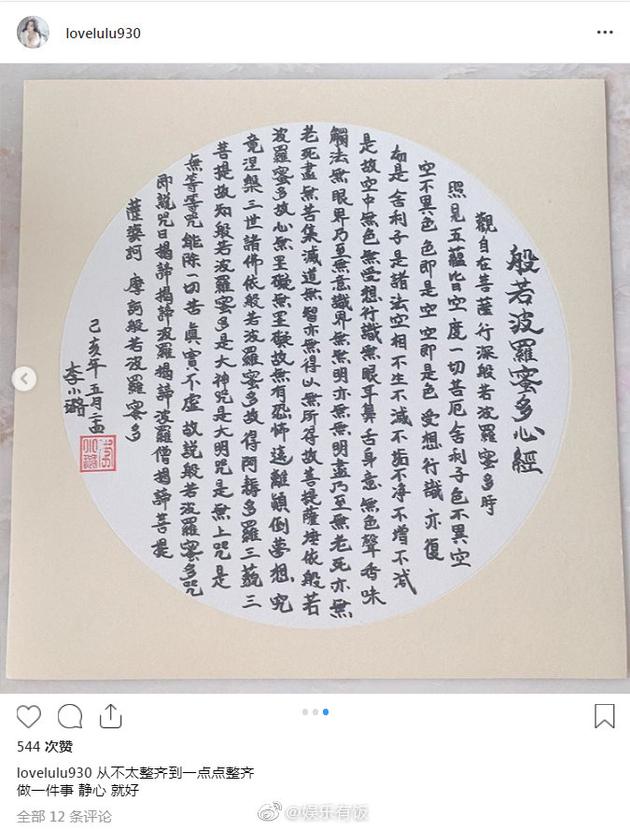 lovelulu930
般若波羅蜜多心經
觀自在菩薩行深般若波羅蜜多時
照見五蘊皆空度一切苦厄舍利子色不異空
空不異色色即是空空即是色受想行識亦復
如是舍利子是諸法空相不生不滅不垢不净不增不減
是故空中無色無受想行識無眼耳鼻舌身意無色聲香味
觸法無眼界乃至無意識界無無明亦無無明盡乃至無老死亦無
老死盡無苦集滅道無智亦無得以無所得故菩提薩埵依般若
波羅蜜多故心無罣礙無罣礙故無有恐怖遠離顛倒夢想究
竟涅槃三世諸佛依般若波羅蜜多故得阿耨多羅三藐三
菩提故知般若波羅蜜多是大神咒是大明咒是無上咒是
無等等咒能除一切苦真實不虛故説般若波羅蜜多咒
即說咒曰揭諦揭諦波羅揭諦波羅僧揭諦菩提
薩婆訶 摩訶般若波羅蜜多
己亥年 五月
李小璐
544 次赞
lovelulu930 从不太整齐到一点点整齐
做一件事 静心 就好
全部 12 条评论
@娱乐有饭